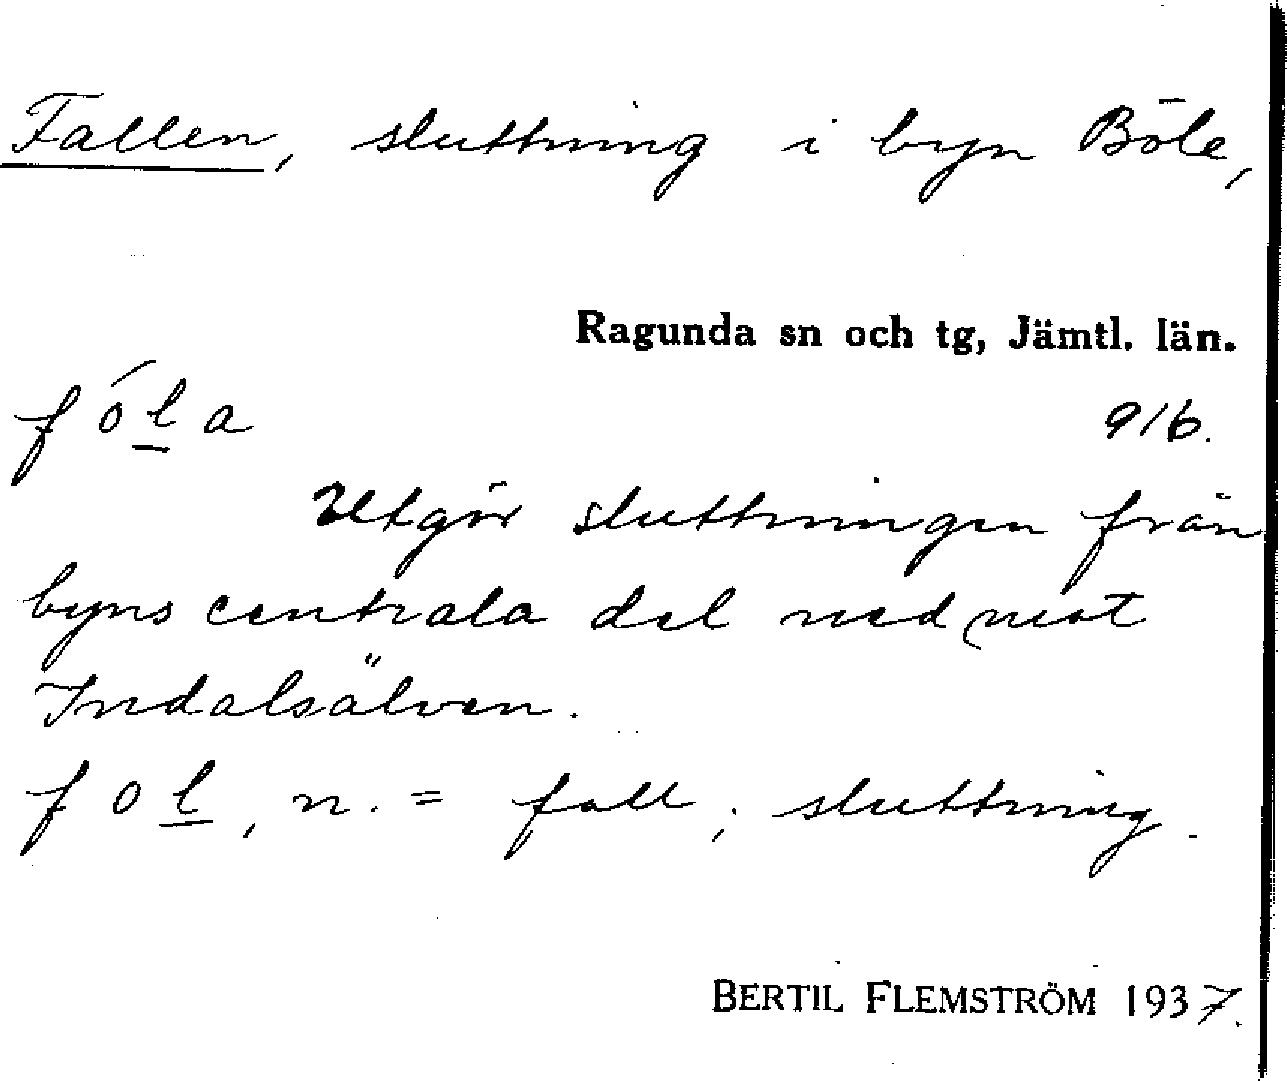 Fallen, sluttning i byn Böle,
Ragunda sn och tg, Jämtl. län.
fó̱ḻa 916.
Utgör sluttningen från
byns centrala del ned mot
Indalsälven.
foḻ, n. = fall, sluttning.
BERTIL FLEMSTRÖM 1937.